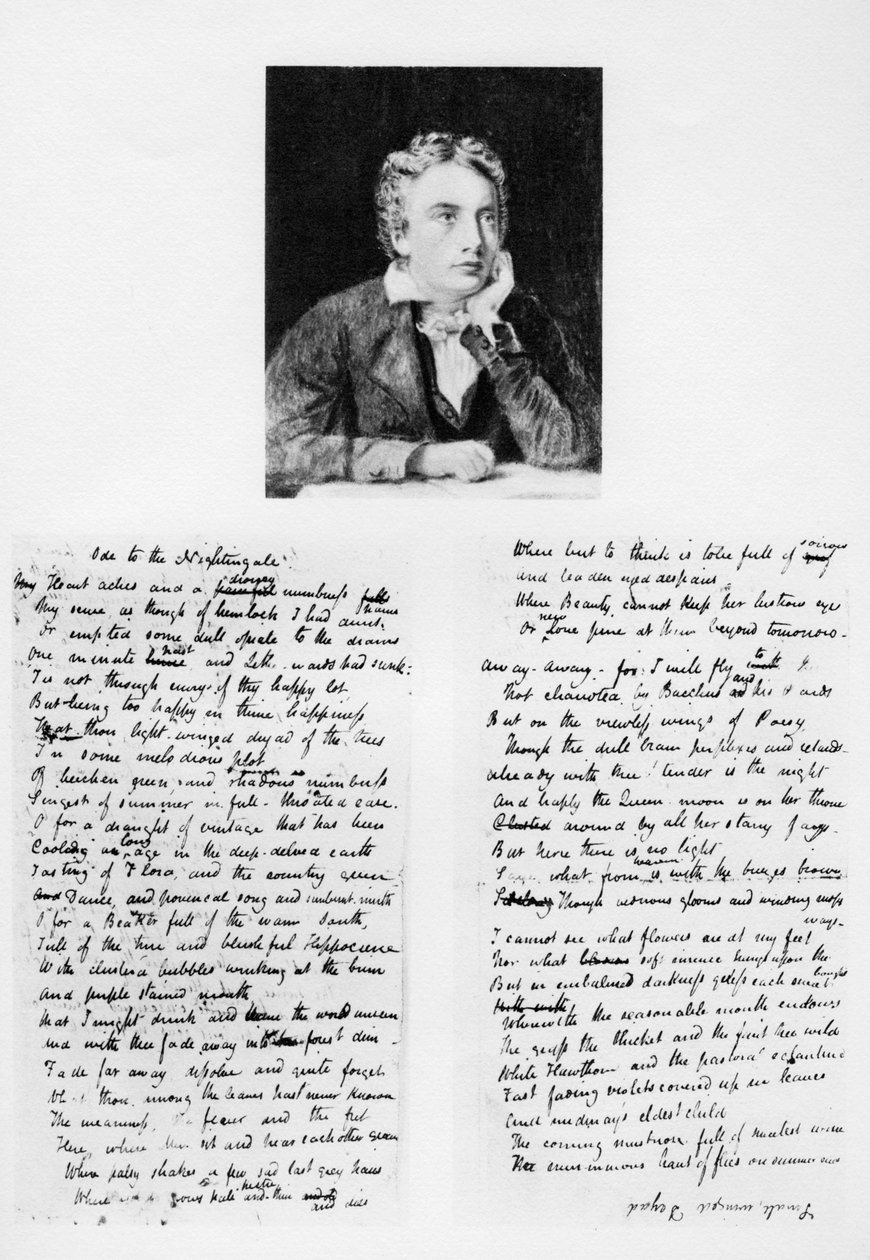 Ode to the Nightingale.
My Heart aches and a painful drowsy numbness falls pains
My sense as though of hemlock I had
Or emptied some dull opiate to the drains
One minute hence past and Lethe-wards had sunk:
Tis not through envy of thy happy lot
But being too happy in thine happiness
That thou light-winged dryad of the trees
In some melodious plot
Of beichen green, and shadows numberless
Singest of summer in full-throated ease.
O for a draught of vintage that has been
Cooling an long age in the deep-delved earth
Tasting of Flora, and the country green
And Dance, and provencal song and sunburnt mirth
O for a Beaker full of the warm South,
Full of the true and blushful Hippocrene
With cluster'd bubbles winking at the brim
And purple stained mouth
That I might drink and leave the world unseen
And with thee fade away into the forest dim -
Fade far away dissolve and quite forget
What thou among the leaves hast never known
The weariness, the fever and the fret
Here, where Men sit and hear each other groan
Where palsy shakes a few sad last grey hairs
Where grows pale and thin and old and dies
Where but to think is to be full of grief sorrow
and leaden eyed despairs
Where Beauty cannot keep her lustrous eyes
Or new Love pine at them beyond tomorrow-
Away-away- for I will fly with to thee
Not charioted by Bacchus and his Pards
But on the viewless wings of Poesy
Though the dull brain perplexes and retards-
Already with thee! tender is the night
And haply the Queen-moon is on her throne
Clusted around by all her starry fays-
But here there is no light
Save what from heaven is with the breezes blown
Though verdurous glooms and winding mossy
ways-
I cannot see what flowers are at my feet
Nor what blooms soft incense hangs upon the
boughs
But in embalmed darkness guess each sweet
With with
Wherewith the seasonable month endows
The grass the thicket and the fruit tree wild
White Hawthorn and the pastoral eglantine
Fast fading violets covered up in leaves
And midmay's eldest child
The coming muskrose full of sweetest wine
The murmurous haunt of flies on summer eves
Small, winged Dryad